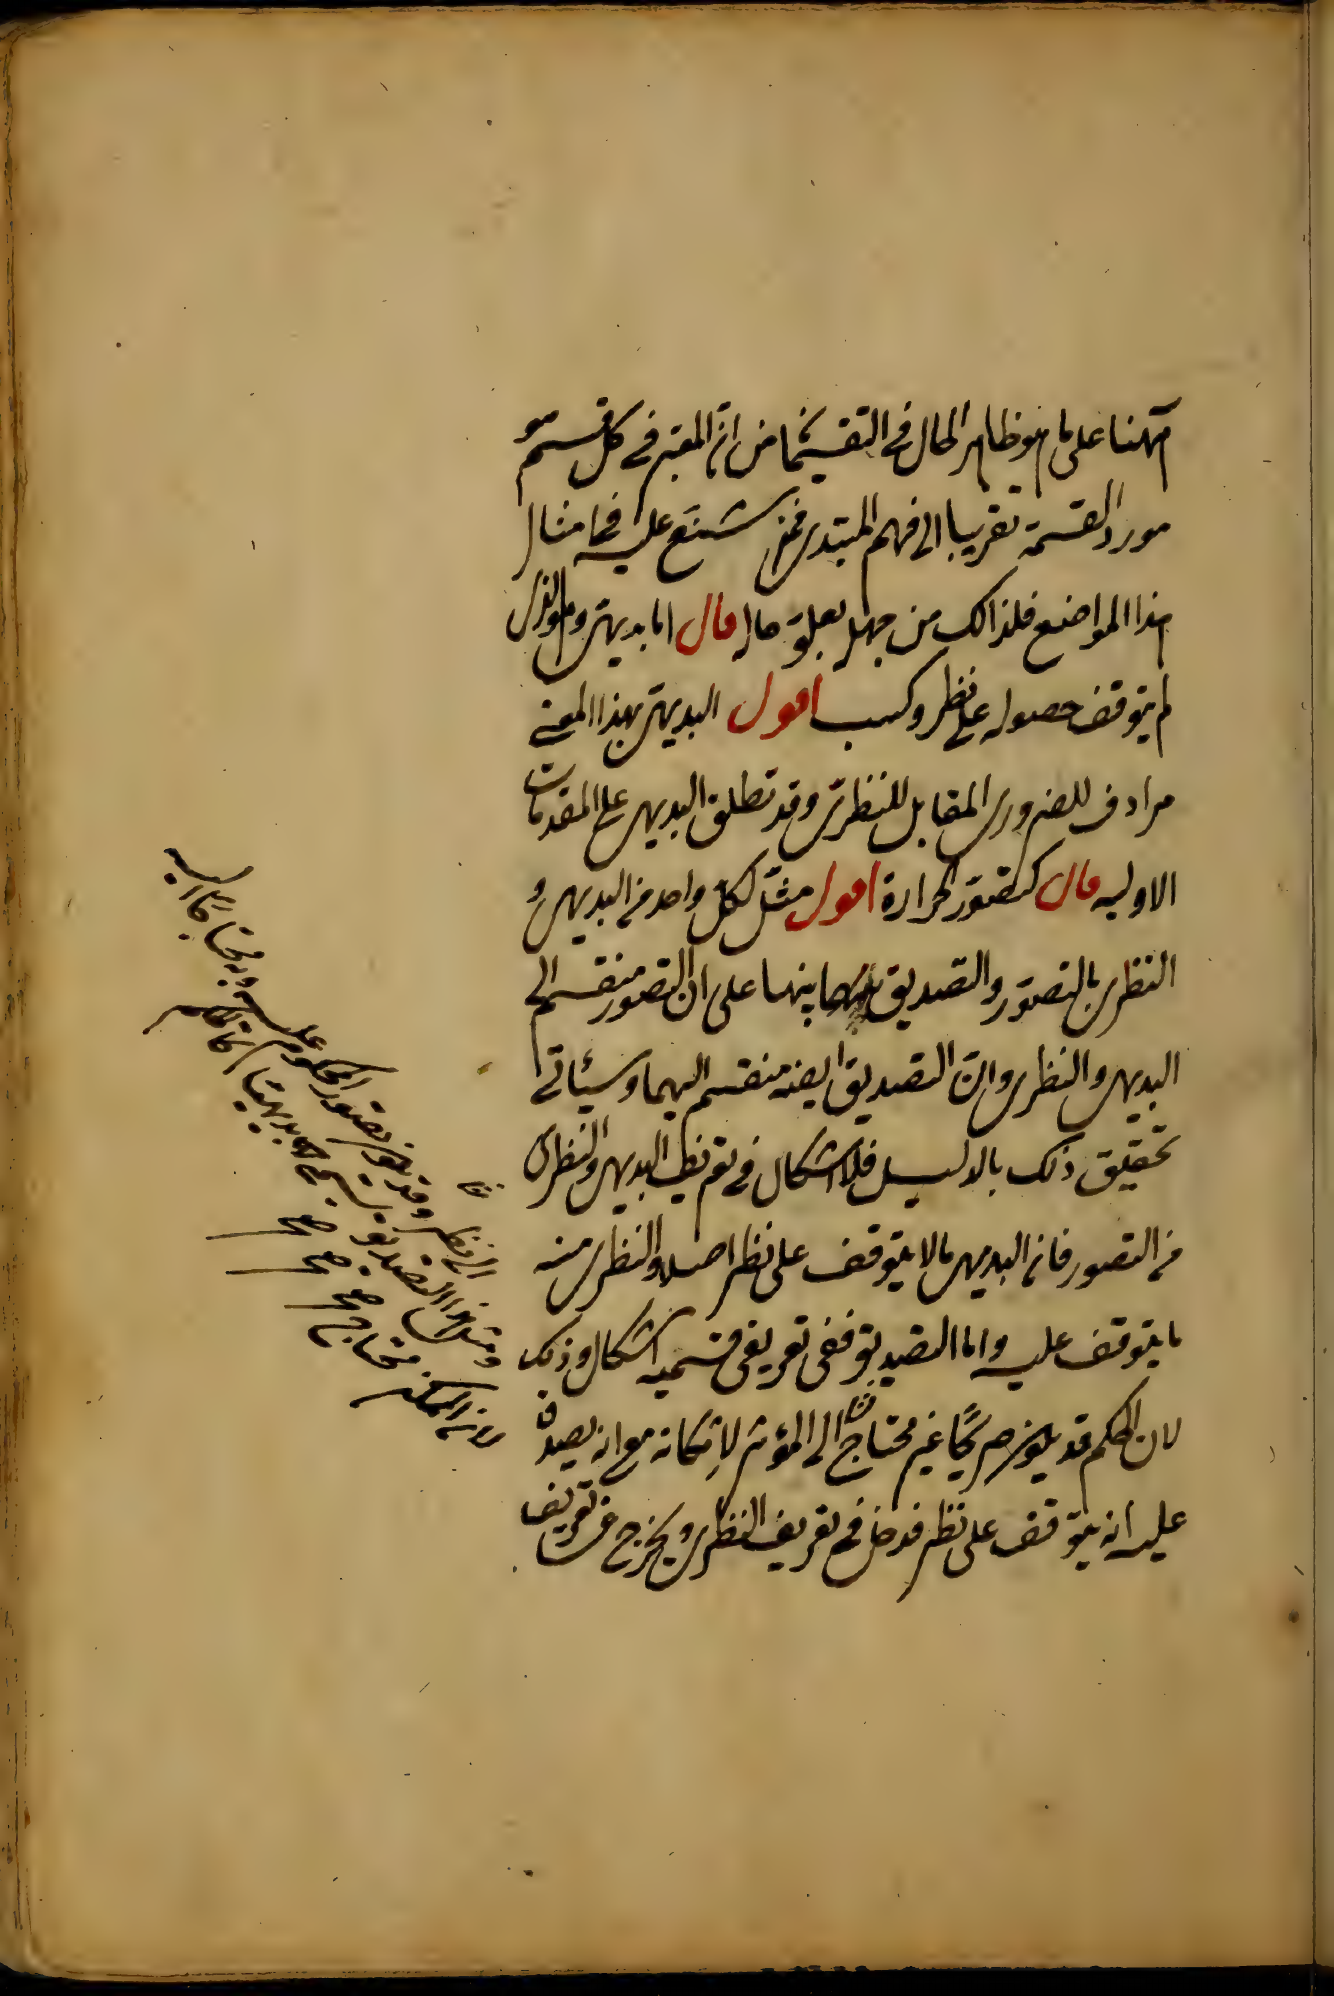 ههنا على ما هو ظاهر الحال في التقسيمات من ان المعتبر في كل قسم هو
مورد القسمة تقريبا الى فهم المبتدى فمن شنع عليه في امثال
هذا المواضع فلذالك من جهل بعلو حاله قال اما بديهى وهو الذى
لم يتوقف حصوله على نظر وكسب اقول البديهى بهذا المعنى
مرادف للضرورى المقابل للنظرى وقد تطلق البديهى على المقدمات
الاوليه قال كتصور الحرارة اقول مثل لكل واحد من البديهى و
النظرى بالتصور والتصديق تنبيها على ان التصور منقسم الى
البديهى والنظرى وان التصديق ايضا منقسم اليهما وسيئاتى
تحقيق ذلك بالدليل فلا اشكال فى تعريف البديهى والنظرى
من التصور فان البديهى ما لا يتوقف على نظر اصلا والنظرى منه
ما يتوقف عليه واما التصديق ففى تعريفى قسميه اشكال وذلك
لان الحكم قد يكون غير محتاج الى المؤثر لامكانه مع انه يصدق
عليه انه يتوقف على نظر فدخل فى تعريف النظرى ويخرج عن تعريف
الى نظر وقد يكون تصور المحكوم عليه وبه محتاجا اليه
ومثل هذا التصديق يسمى بديهيا كالحكم
لان الممكن محتاج